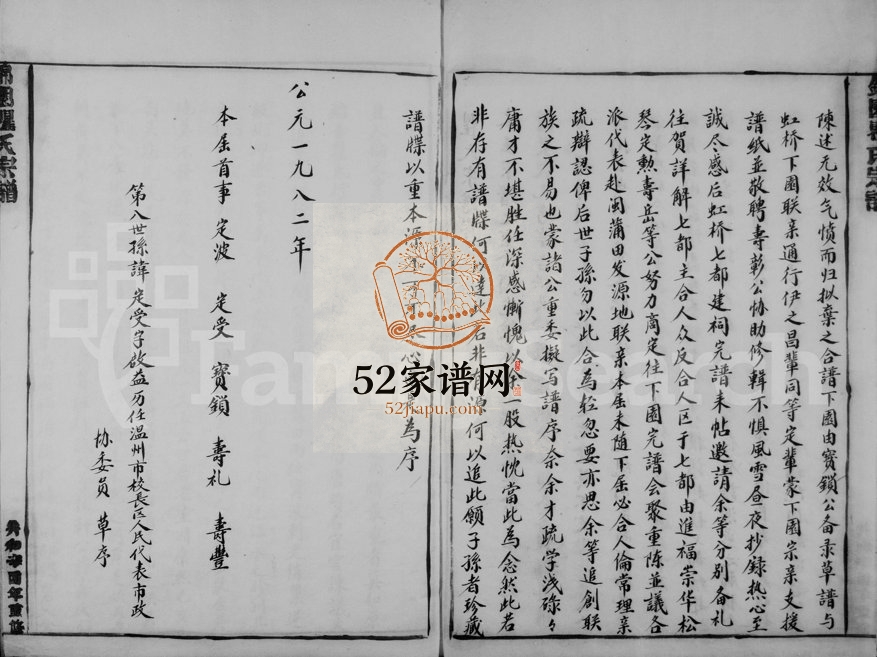 陳述无效气愤而归拟棄之合譜下園由寳鎖公备录草譜与
虹桥下園联亲通行伊之昌輩同等定輩蒙下園宗亲支援
譜纸並敬聘壽彰公协助修輯不惧風雪昼夜抄録热心至
誠尽感后虹桥七都建祠完譜来帖邀請余等分别备礼
往贺詳解七都主合人众反合人区于七都由進福崇华松
琴定勲壽岳等公努力商定往下園完譜会聚重陈並議各
派代表赴闽蒲田发源地联亲本届未随下届必合人倫常理亲
疏辩認俾后世子孫勿以此合為轻忽要亦思余等追創联
族之不易也蒙諸公重委擬写譜序奈余才疏学浅碌々
庸才不堪胜任深感慚愧以 一股热忱當此為念然此若
非存有譜牒何以達 若非 源何以追此願子孫者珍藏
譜牒以重本源 心 為序
公元一九八二年
本届首事 定波 定受 寳鎖 壽礼 壽豐
第八世孫諱定受字啟益历任温州市校長区人民代表市政
协委員 草序
52家谱网
52jiapu.com
FamilySearch